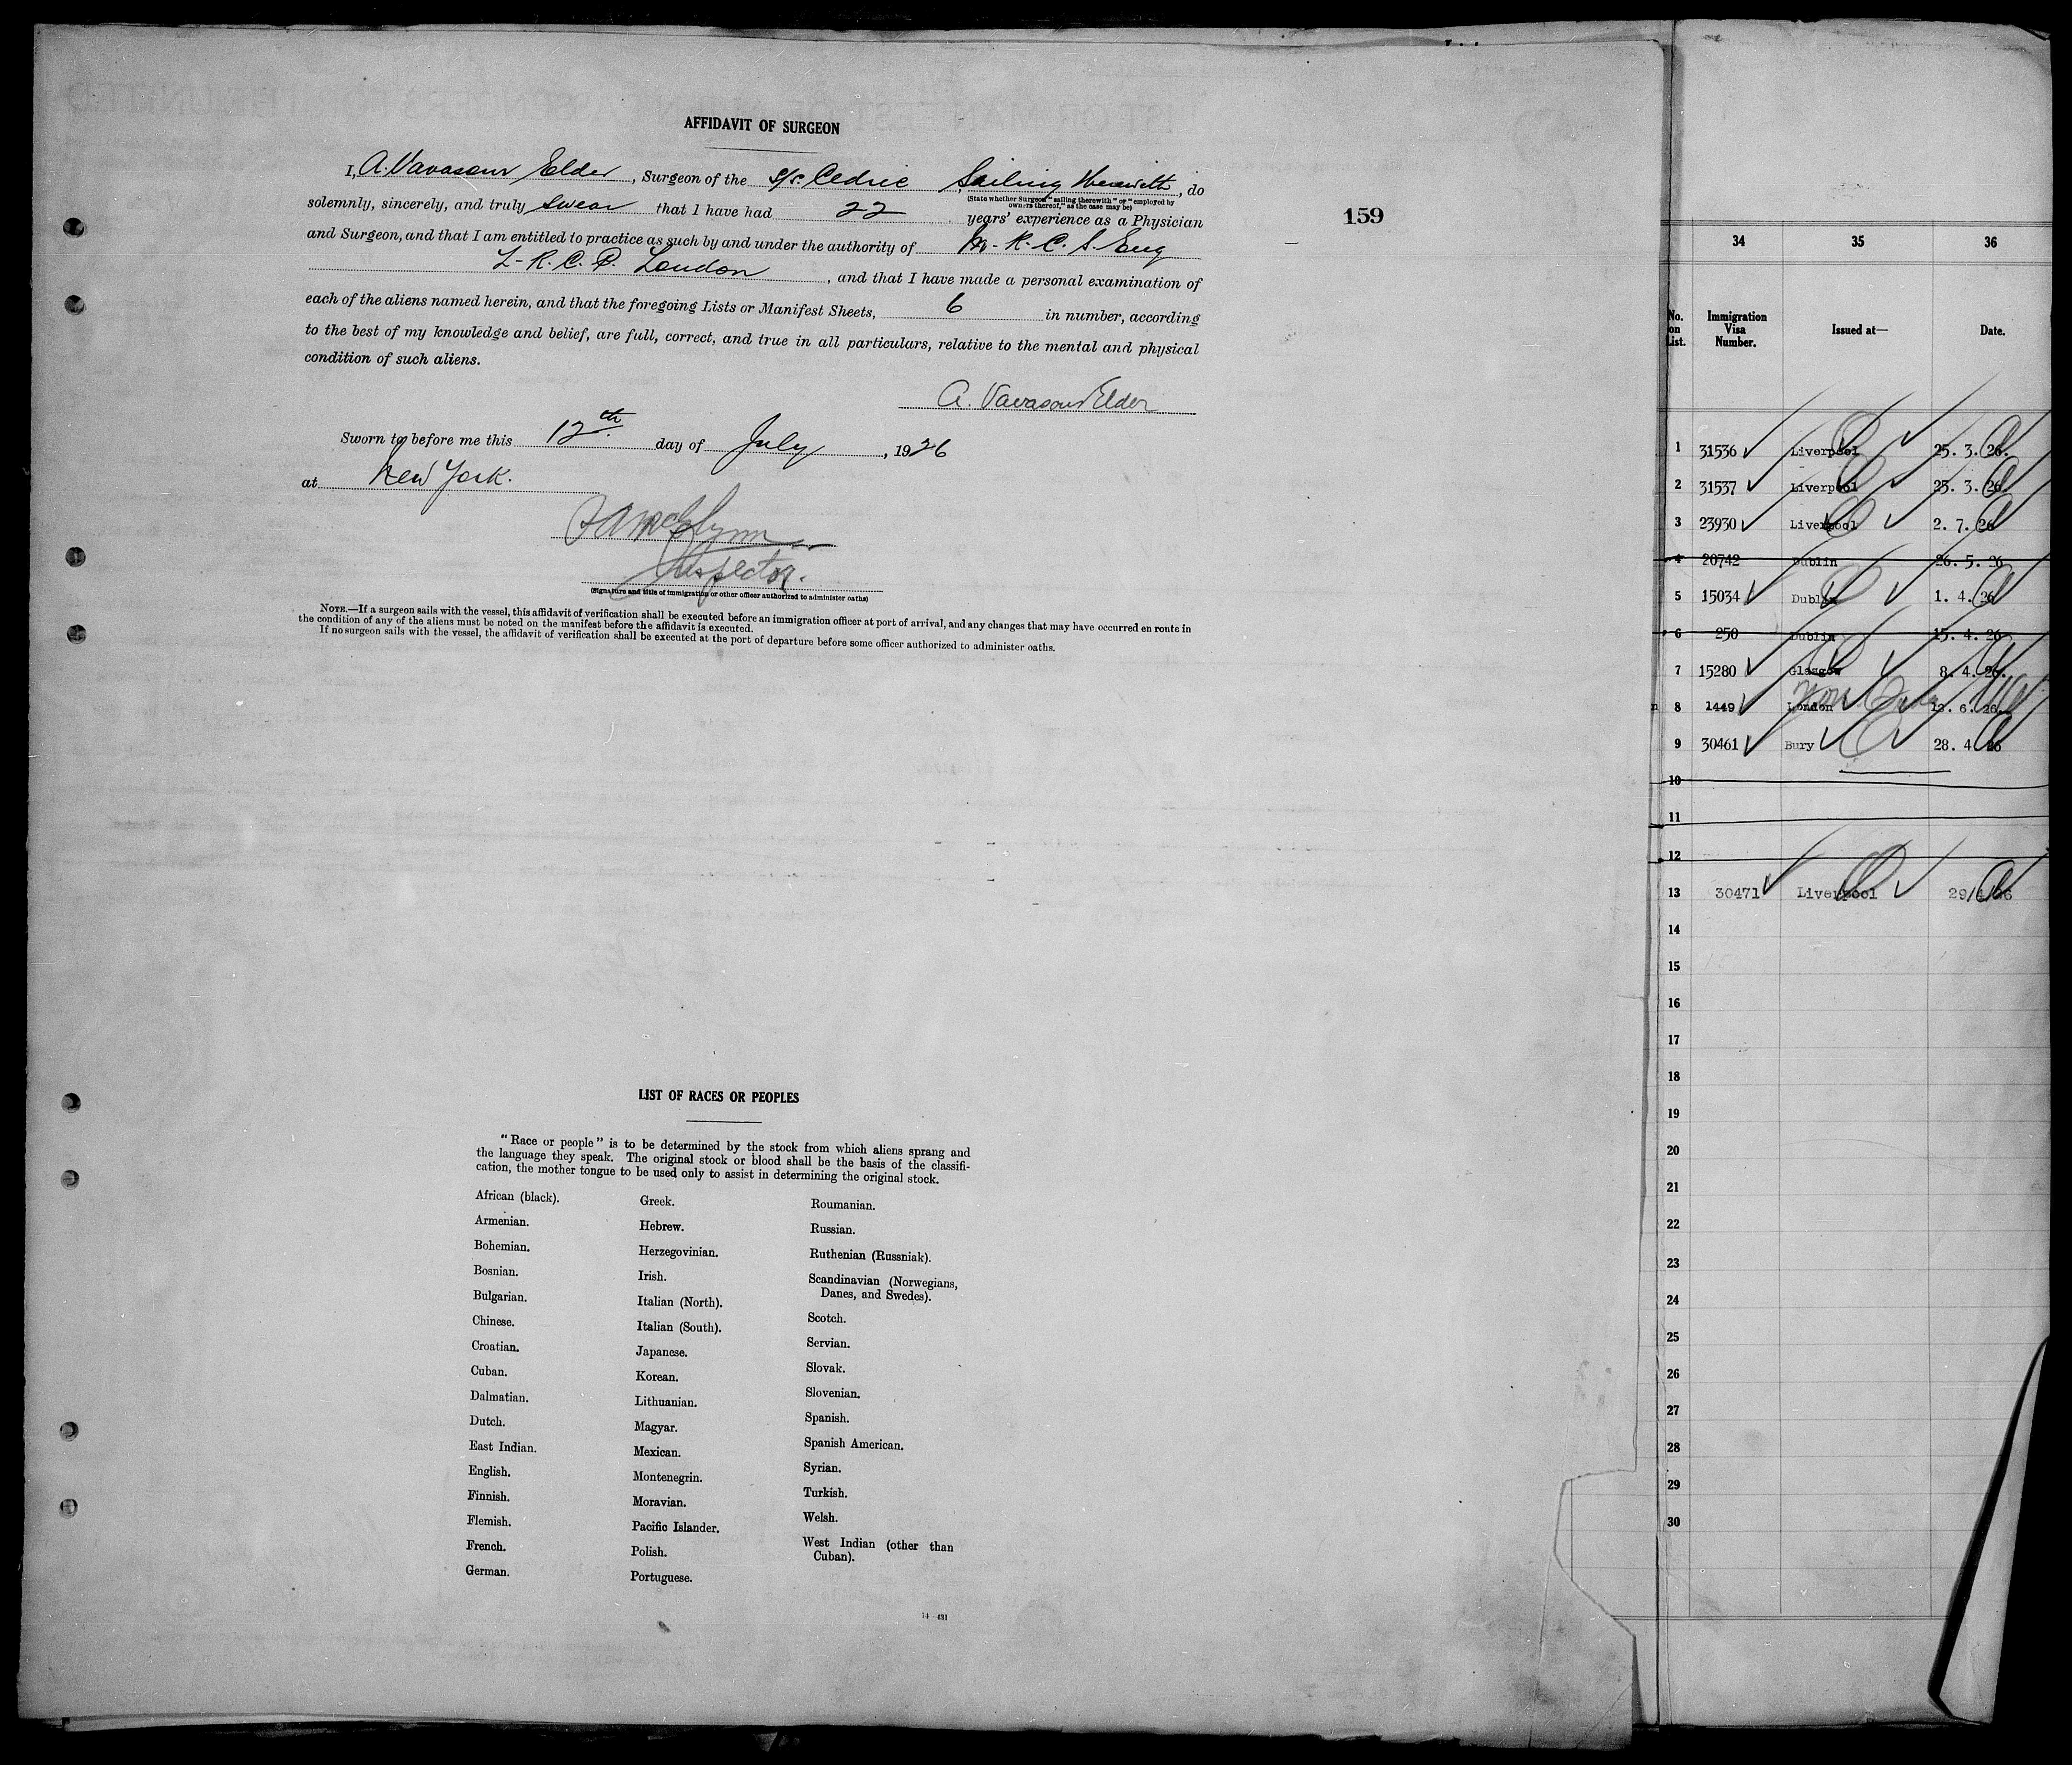 AFFIDAVIT OF SURGEON
I, A. Vavasour Elder, Surgeon of the S/S. Cedric Sailing therewith, do
(State whether Surgeon "sailing therewith" or "employed by
owners thereof," as the case may be)
solemnly, sincerely, and truly swear that I have had 22 years' experience as a Physician
and Surgeon, and that I am entitled to practice as such by and under the authority of M.R.C.S. Eng
L.R.C.P. London, and that I have made a personal examination of
each of the aliens named herein, and that the foregoing Lists or Manifest Sheets, 6 in number, according
to the best of my knowledge and belief, are full, correct, and true in all particulars, relative to the mental and physical
condition of such aliens.
A. Vavasour Elder
Sworn to before me this 12th day of July, 1926
at New York.
Inspector.
(Signature and title of immigration or other officer authorized to administer oaths)
NOTE.—If a surgeon sails with the vessel, this affidavit of verification shall be executed before an immigration officer at port of arrival, and any changes that may have occurred en route in
the condition of any of the aliens must be noted on the manifest before the affidavit is executed.
If no surgeon sails with the vessel, the affidavit of verification shall be executed at the port of departure before some officer authorized to administer oaths.
159
LIST OF RACES OR PEOPLES
"Race or people" is to be determined by the stock from which aliens sprang and
the language they speak. The original stock or blood shall be the basis of the classifi-
cation, the mother tongue to be used only to assist in determining the original stock.
African (black).
Armenian.
Bohemian.
Bosnian.
Bulgarian.
Chinese.
Croatian.
Cuban.
Dalmatian.
Dutch.
East Indian.
English.
Finnish.
Flemish.
French.
German.
Greek.
Hebrew.
Herzegovinian.
Irish.
Italian (North).
Italian (South).
Japanese.
Korean.
Lithuanian.
Magyar.
Mexican.
Montenegrin.
Moravian.
Pacific Islander.
Polish.
Portuguese.
Roumanian.
Russian.
Ruthenian (Russniak).
Scandinavian (Norwegians,
Danes, and Swedes).
Scotch.
Servian.
Slovak.
Slovenian.
Spanish.
Spanish American.
Syrian.
Turkish.
Welsh.
West Indian (other than
Cuban).
34 35 36
No. on List. Immigration Visa Number. Issued at— Date.
1 31536 Liverpool 25. 3. 26.
2 31537 Liverpool 25. 3. 26.
3 23930 Liverpool 2. 7. 26
4 20742 Dublin 26. 5. 26
5 15034 Dublin 1. 4. 26
6 250 Dublin 15. 4. 26
7 15280 Glasgow 8. 4. 26.
8 1449 London 6. 26.
9 30461 Bury 28. 4. 26
10
11
12
13 30471 Liverpool 29/4/26
14
15
16
17
18
19
20
21
22
23
24
25
26
27
28
29
30